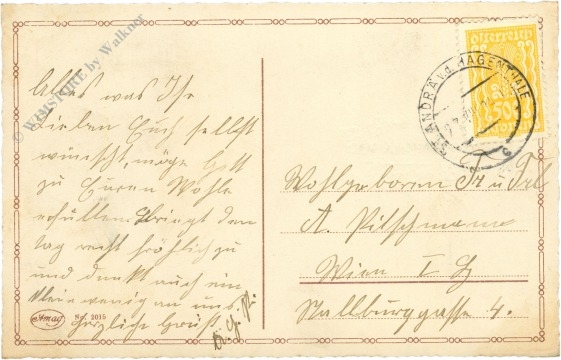 © WIMSTORE by Walkner
Alles was Ihr
lieben Euch selbst
wünscht, möge Gott
zu Eurem Wohle
erfüllen. Bringt den
Tag recht fröhlich zu
und denkt auch ein
klein wenig an uns.
Herzliche Grüße
Amag
No. 2015
ST. ANDRÄ v. d. HAGENTHALE
österreich
Wohlgeboren Hr u. Frl
A. Pitschmann
Wien I
Stallburggasse 4.